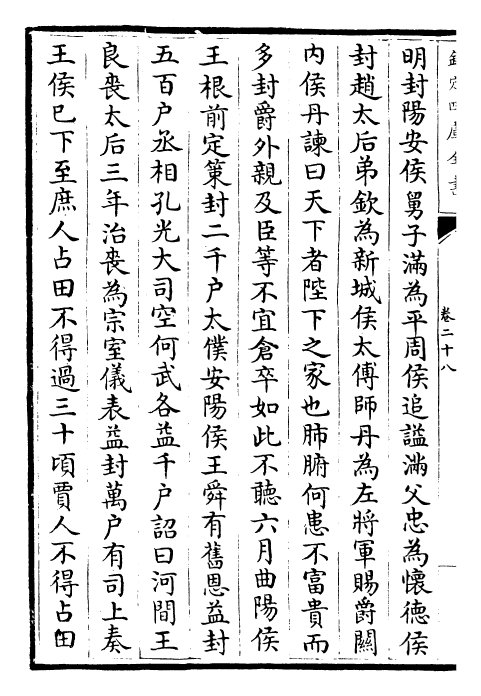 欽定四庫全書
卷二十八
明封陽安侯舅子滿為平周侯追謚滿父忠為懷德侯
封趙太后弟欽為新城侯太傅師丹為左將軍賜爵關
内侯丹諫曰天下者陛下之家也肺腑何患不富貴而
多封爵外親及臣等不宜倉卒如此不聽六月曲陽侯
王根前定策封二千户太僕安陽侯王舜有舊恩益封
五百户丞相孔光大司空何武各益千户詔曰河間王
良喪太后三年治喪為宗室儀表益封萬户有司上奏
王侯已下至庶人占田不得過三十頃賈人不得占田